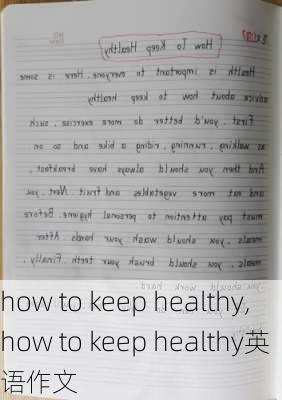 How To Keep Healthy
Health is important to everyone. Here is some
advice about how to keep healthy
First, you'd better do more exercise, such
as walking, running, riding a bike and so on
And then you should always have breakfast,
and eat more vegetables and fruit. Next, you
must pay attention to personal hygiene. Before
meals, you should wash your hands. After
meals, you should brush your teeth. Finally,
you should work hard
how to keep healthy,
how to keep healthy英
语作文